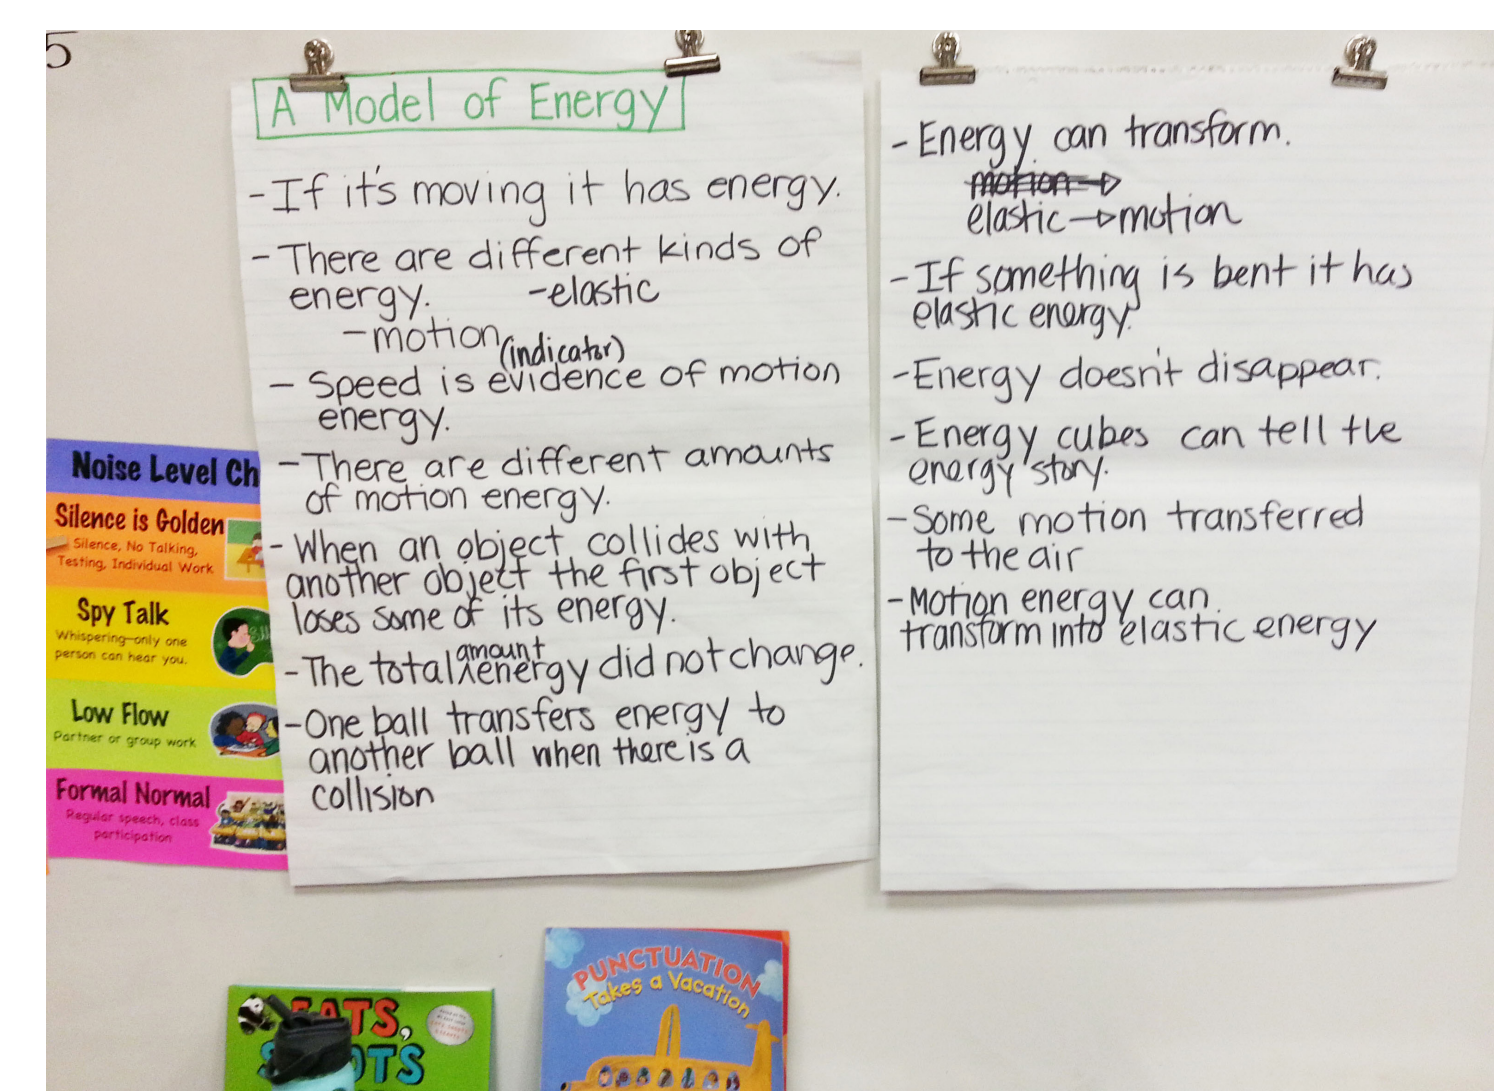 5
A Model of Energy
- If it's moving it has energy.
- There are different kinds of
energy. - elastic
- motion
(indicator)
- Speed is evidence of motion
energy.
- There are different amounts
of motion energy.
- When an object collides with
another object the first object
loses some of its energy.
amount
- The total ^ energy did not change.
- One ball transfers energy to
another ball when there is a
collision
- Energy can transform.
motion →
elastic → motion
- If something is bent it has
elastic energy.
- Energy doesn't disappear.
- Energy cubes can tell the
energy story.
- Some motion transferred
to the air
- Motion energy can
transform into elastic energy
Noise Level Ch
Silence is Golden
Silence, No Talking,
Testing, Individual Work
Spy Talk
Whispering—only one
person can hear you.
Low Flow
Partner or group work
Formal Normal
Regular speech, class
participation
EATS,
PUNCTUATION
Takes a Vacation